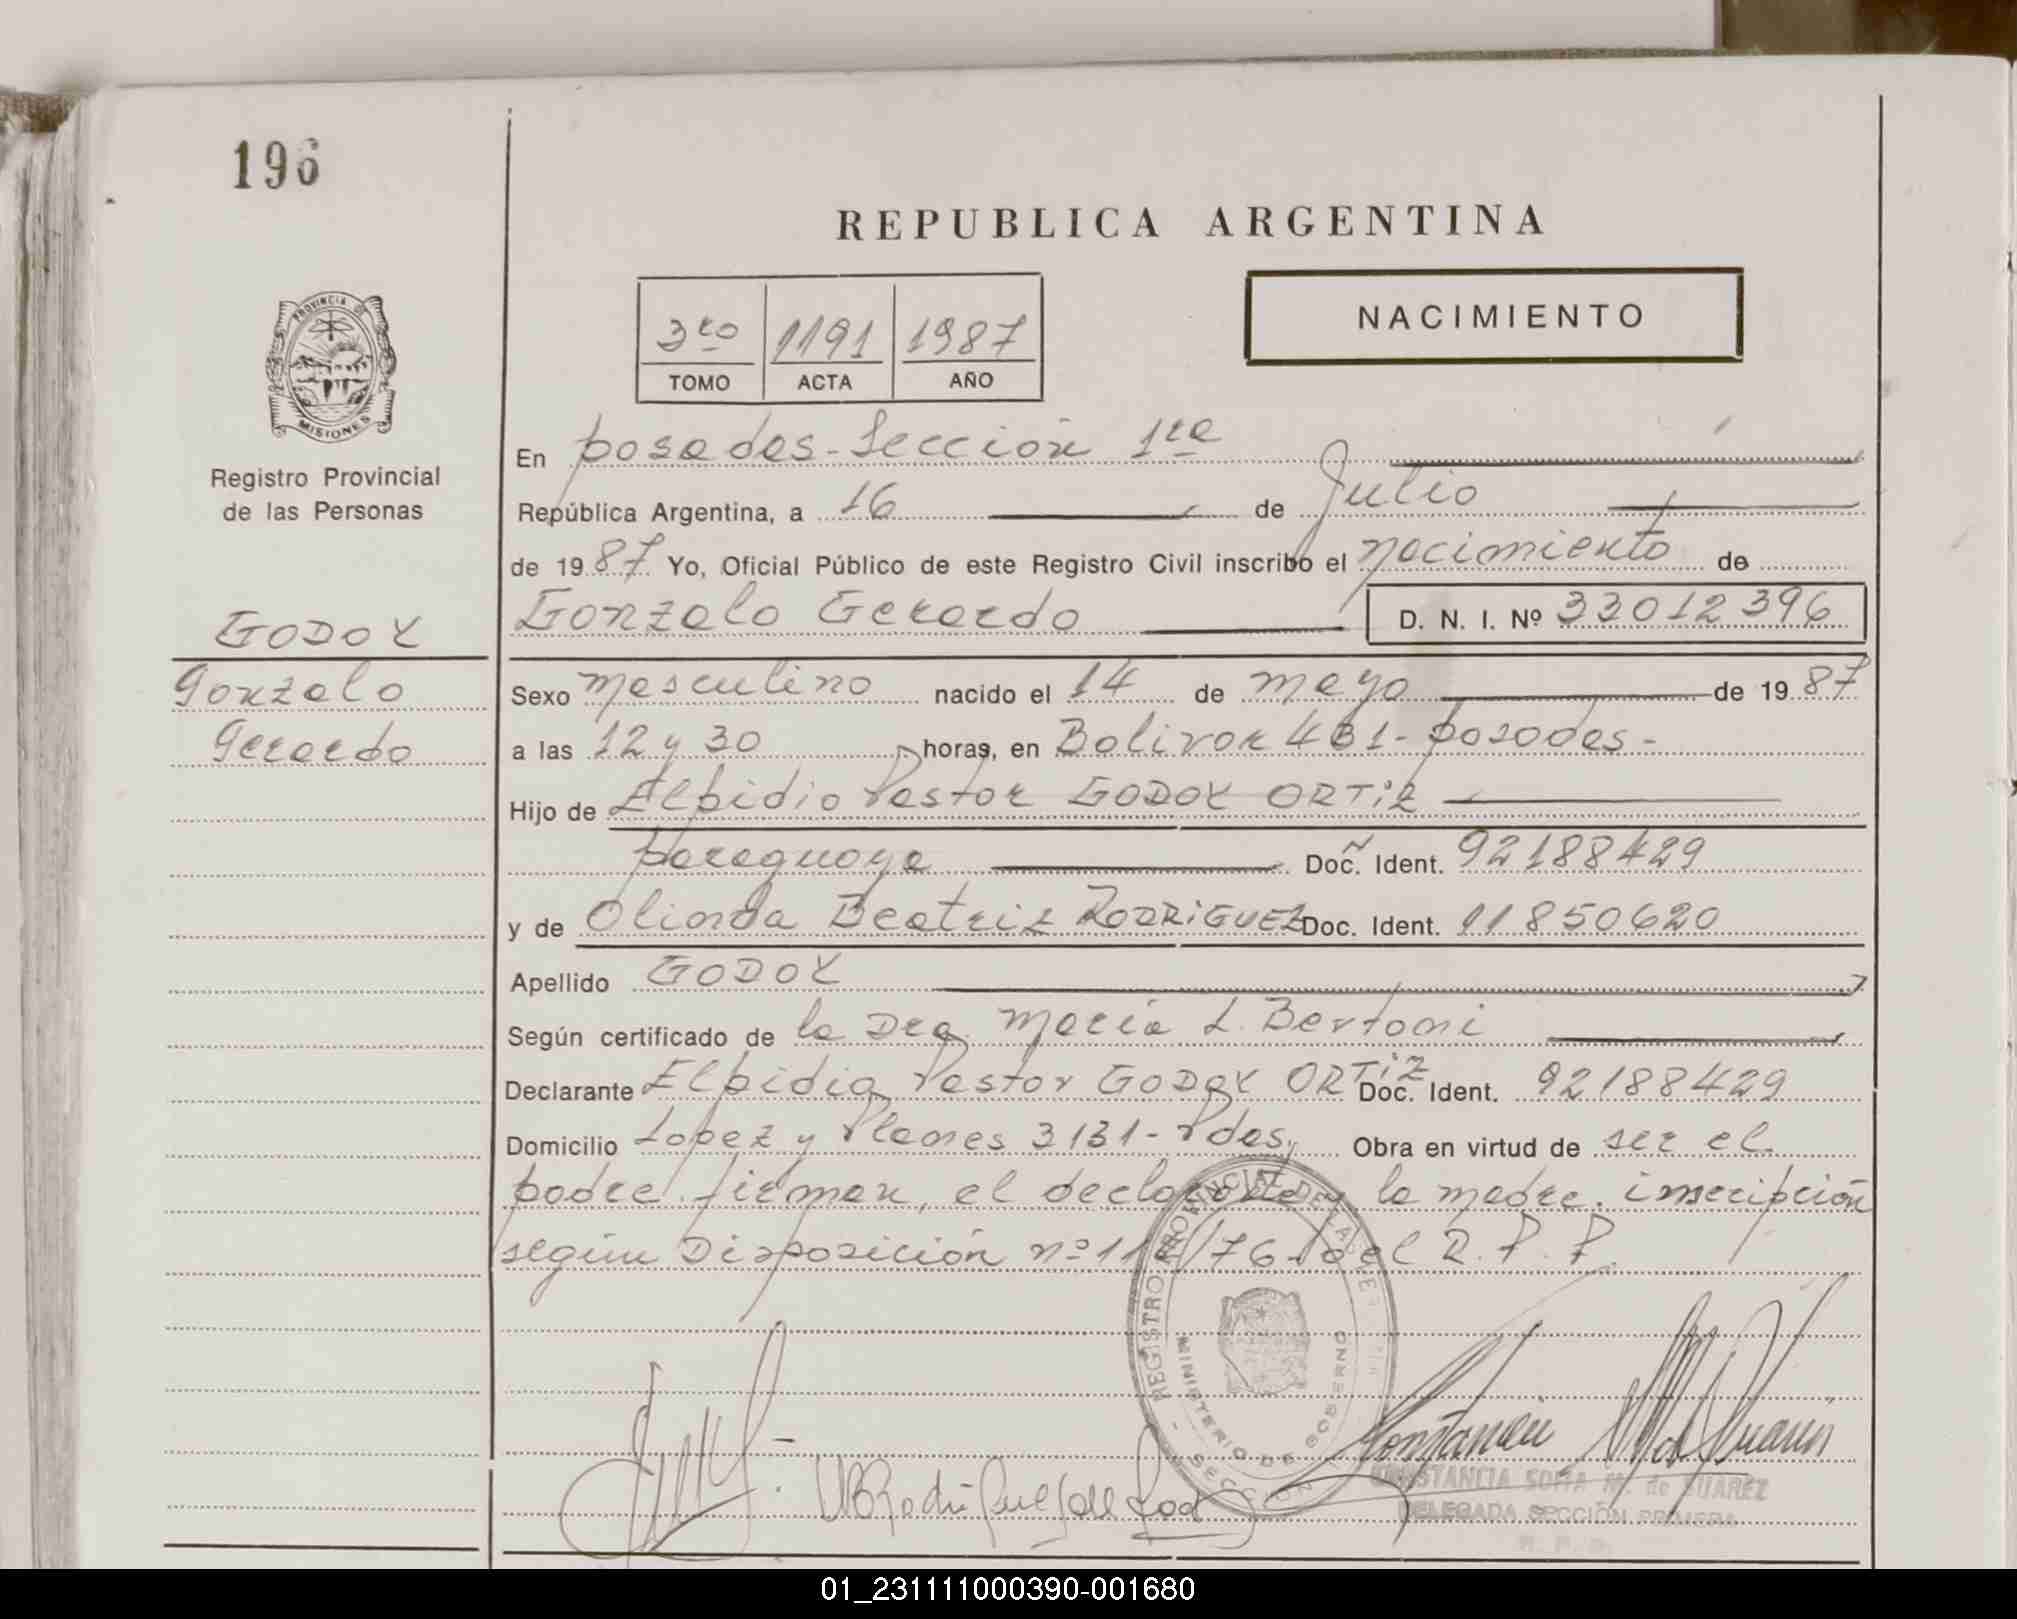 196
REPUBLICA ARGENTINA
NACIMIENTO
3ro 1191 1987
TOMO ACTA AÑO
PROVINCIA DE
MISIONES
Registro Provincial
de las Personas
En posadas - Sección 1ra
República Argentina, a 16 de Julio
de 1987 Yo, Oficial Público de este Registro Civil inscribo el nacimiento de
Gonzalo Gerardo D. N. I. Nº 33012396
GODOY
Gonzalo
Gerardo
Sexo masculino nacido el 14 de mayo de 1987
a las 12 y 30 horas, en Bolivar 461 - posadas -
Hijo de Elpidio Pastor GODOY ORTIZ
paraguaya Doc. Ident. 92188429
y de Olinda Beatriz RODRIGUEZ Doc. Ident. 11850620
Apellido GODOY
Según certificado de la Dra. Maria L. Bertoni
Declarante Elpidio Pastor GODOY ORTIZ Doc. Ident. 92188429
Domicilio Lopez y Planes 3131 - Pdas. Obra en virtud de ser el
padre. firman, el declarante y la madre. inscripción
según Disposición nº 11 /76 del R. P. P.
REGISTRO PROVINCIAL DE LAS
MINISTERIO DE GOBIERNO
SECCION
CONSTANCIA SOFIA M. de SUAREZ
DELEGADA SECCIÓN PRIMERA
R. P. P.
01_231111000390-001680